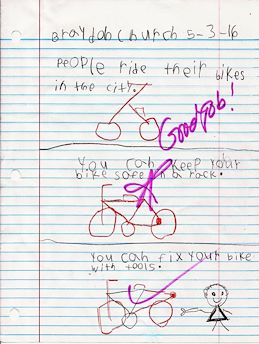 Braydon Church 5-3-16
PeoPLE ride their bikes
in the city.
Good Job!
You can keep your
bike safe in a rack.
You can fix your bike
with tools.